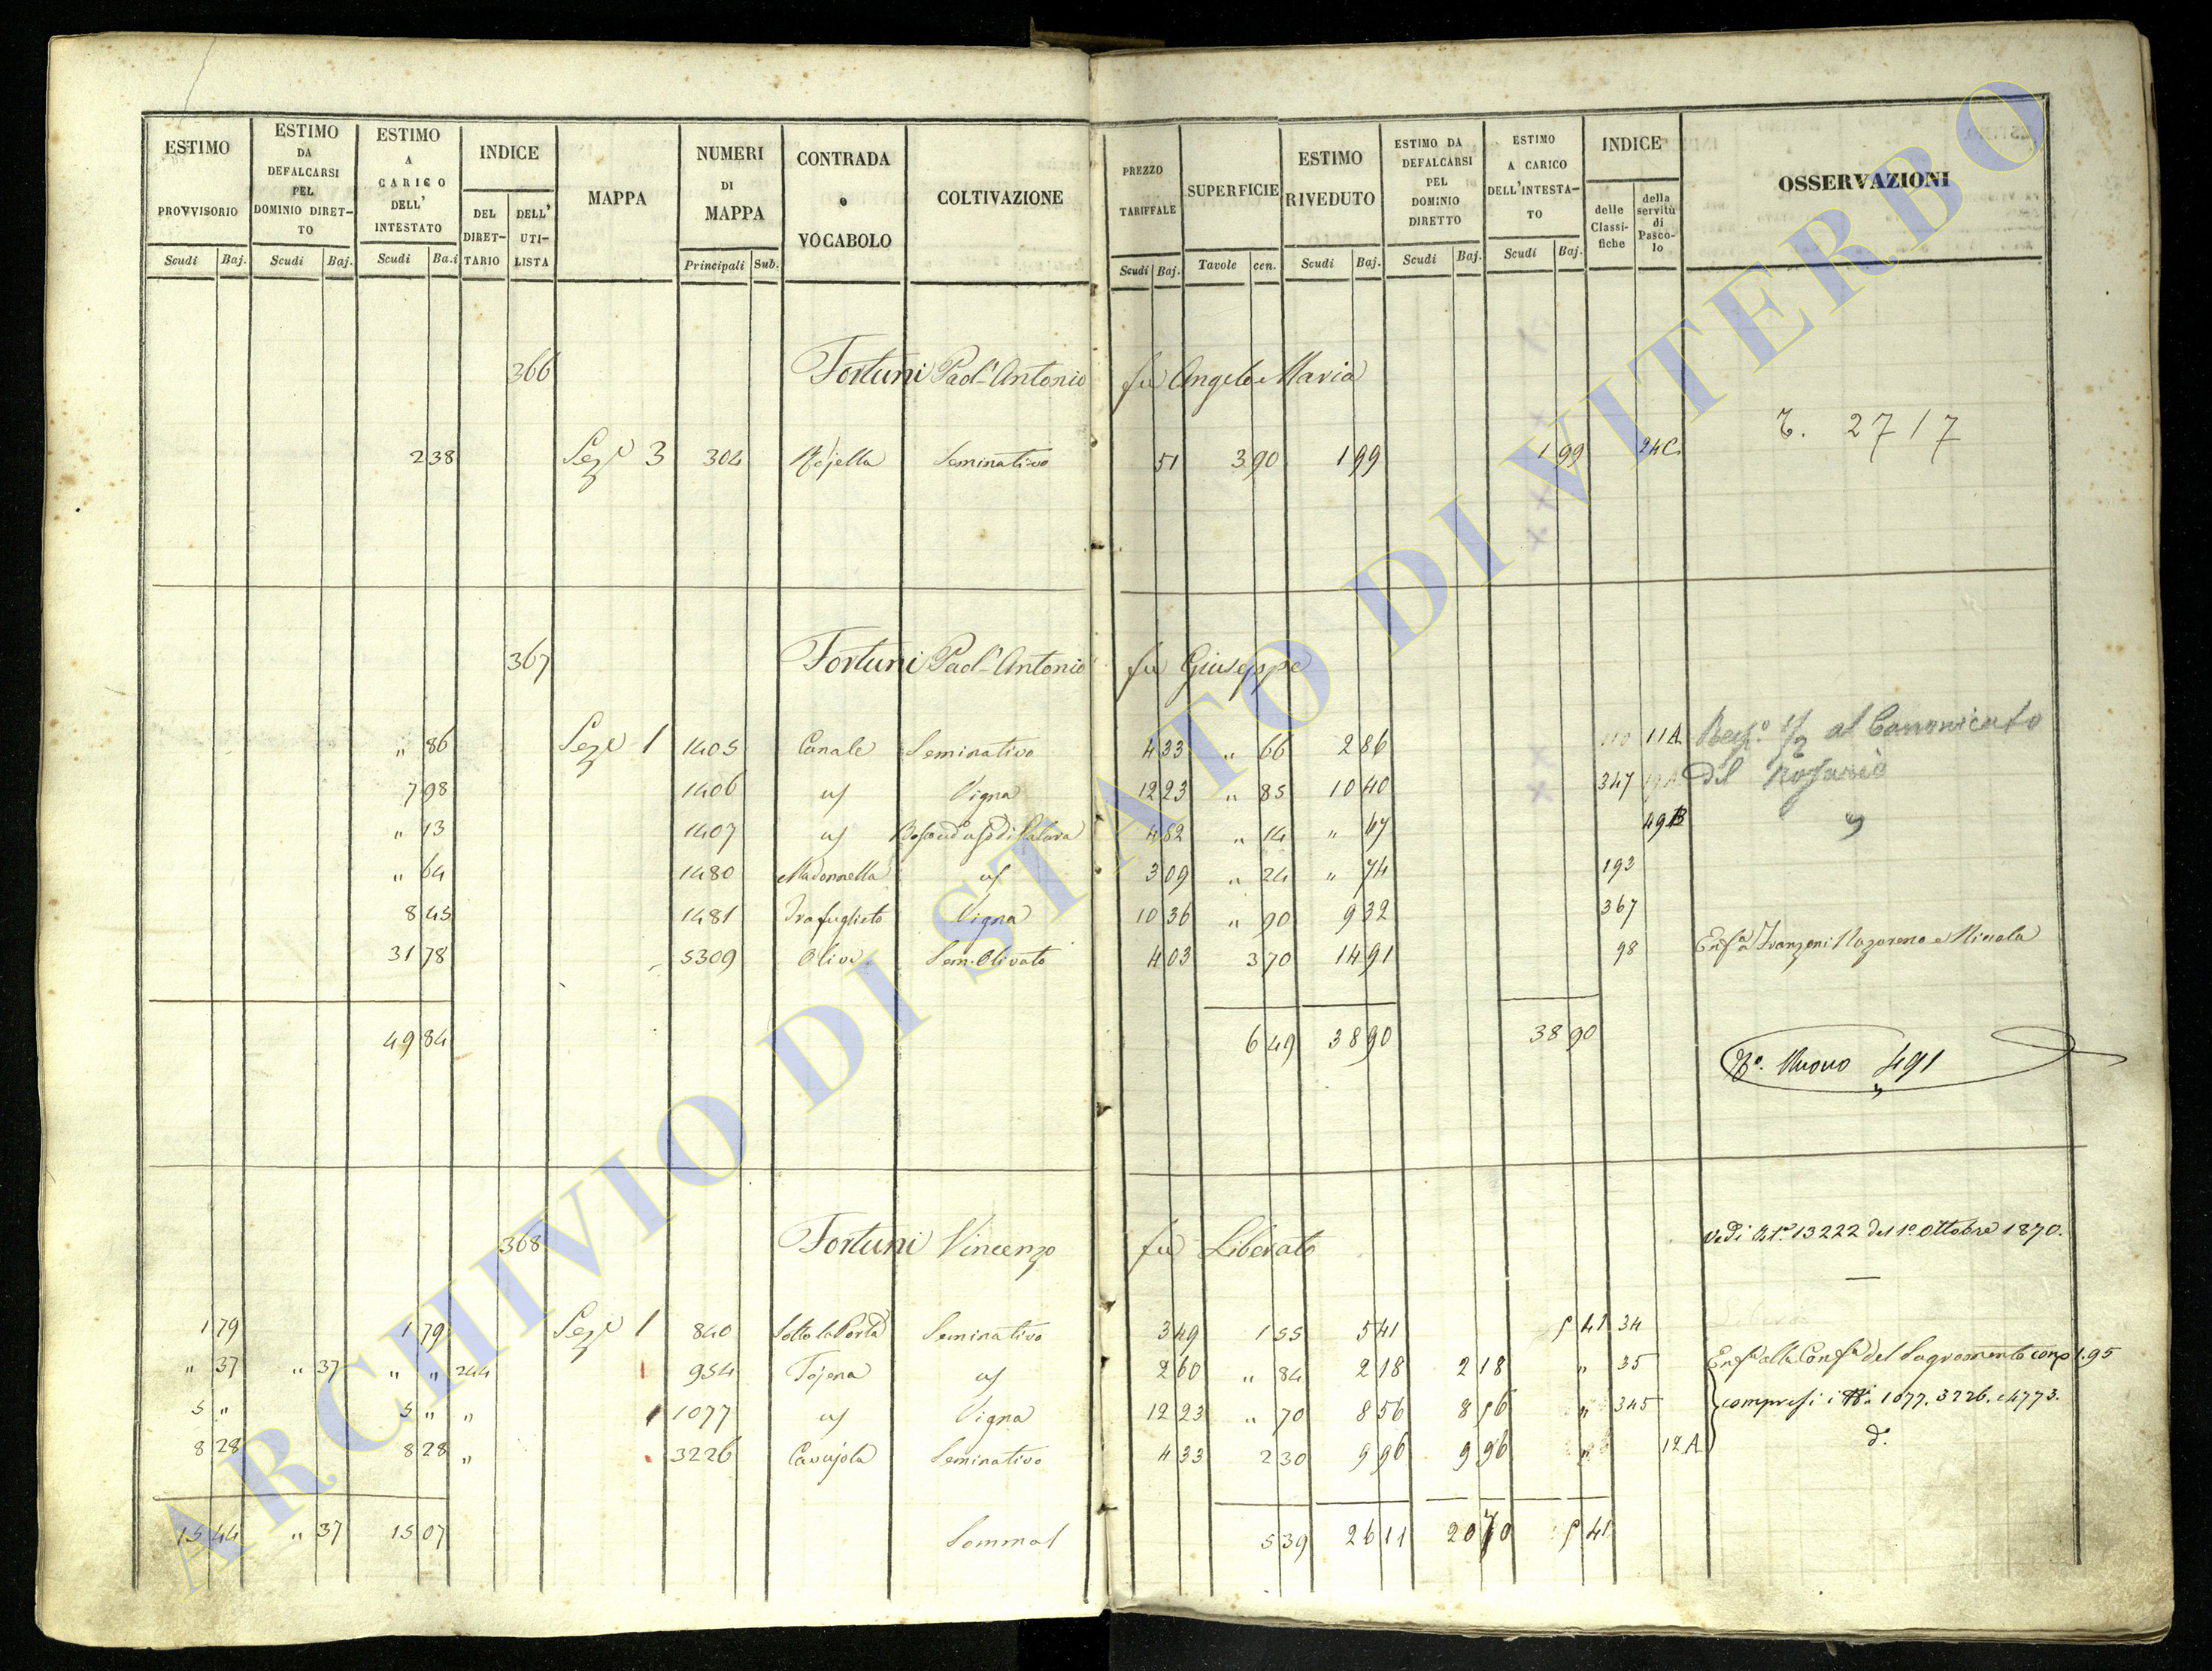 ESTIMO PROVVISORIO Scudi Baj.
ESTIMO DA DEFALCARSI PEL DOMINIO DIRET-TO Scudi Baj.
ESTIMO A CARICO DELL' INTESTATO Scudi Ba.i
INDICE DEL DIRET-TARIO DELL' UTI-LISTA
MAPPA
NUMERI DI MAPPA Principali Sub.
CONTRADA o VOCABOLO
COLTIVAZIONE
PREZZO TARIFFALE Scudi Baj.
SUPERFICIE Tavole cen.
ESTIMO RIVEDUTO Scudi Baj.
ESTIMO DA DEFALCARSI PEL DOMINIO DIRETTO Scudi Baj.
ESTIMO A CARICO DELL'INTESTA-TO Scudi Baj.
INDICE delle Classi-fiche della servitù di Pasco-lo
OSSERVAZIONI
366 Fortuni Paol'Antonio fu Angelo Maria
T. 2717
2 38 Sez.e 3 304 Seminativo 51 3 90 1 99 1 99 24C
367 Fortuni Paol'Antonio fu Giuseppe
" 86 Sez.e 1 1405 Canale Seminativo 4 33 " 66 2 86 110 11A Resp.o 1/2 al Canonicato
7 98 1406 " Vigna 12 23 " 85 10 40 347 del Rosario
" 13 1407 " 4 82 " 14 " 67 49B "
" 64 1480 Madonnella " 3 09 " 24 " 74 193
8 45 1481 Trafuglieto Vigna 10 36 " 90 9 32 367
31 78 5309 Olivo Sem. Olivato 4 03 3 70 14 91 98 Enf.a Franzoni Nazareno e Nicola
49 84 6 49 38 90 38 90
N.o Nuovo 491
368 Fortuni Vincenzo fu Liberato Vedi Art.o 13222 del 1.o Ottobre 1870.
1 79 1 79 Sez.e 1 840 Sotto la Porta Seminativo 3 49 1 55 5 41 5 41 34
" 37 " 37 " " 244 954 Tojena " 2 60 " 84 2 18 2 18 " 35 Enf.a alla Conf.a del Sagramento con 1.95
5 " 5 " " 1077 " Vigna 12 23 " 70 8 56 8 56 " 345 compresi i N.i 1077. 3226. e 4773.
8 28 8 28 " 3226 Cavajola Seminativo 4 33 2 30 9 96 9 96 " 12A d.o
15 44 " 37 15 07 Sommal 5 39 26 11 20 70 5 41
ARCHIVIO DI STATO DI VITERBO